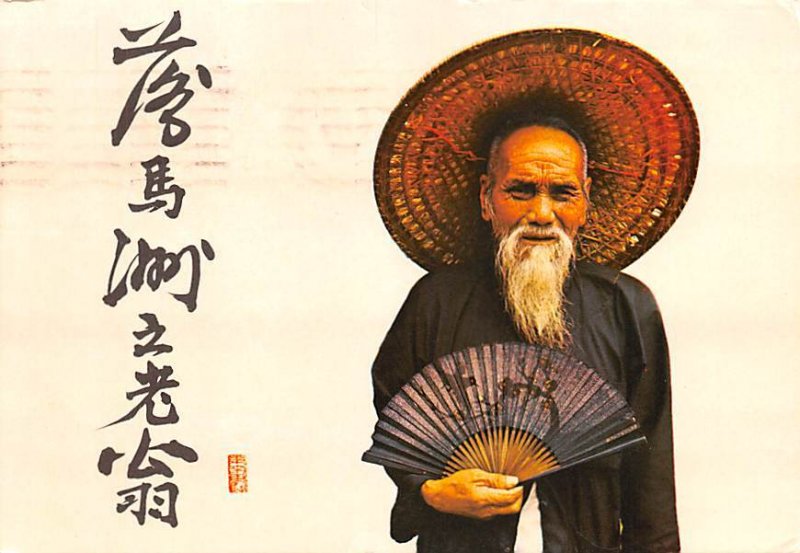 落馬洲之老翁